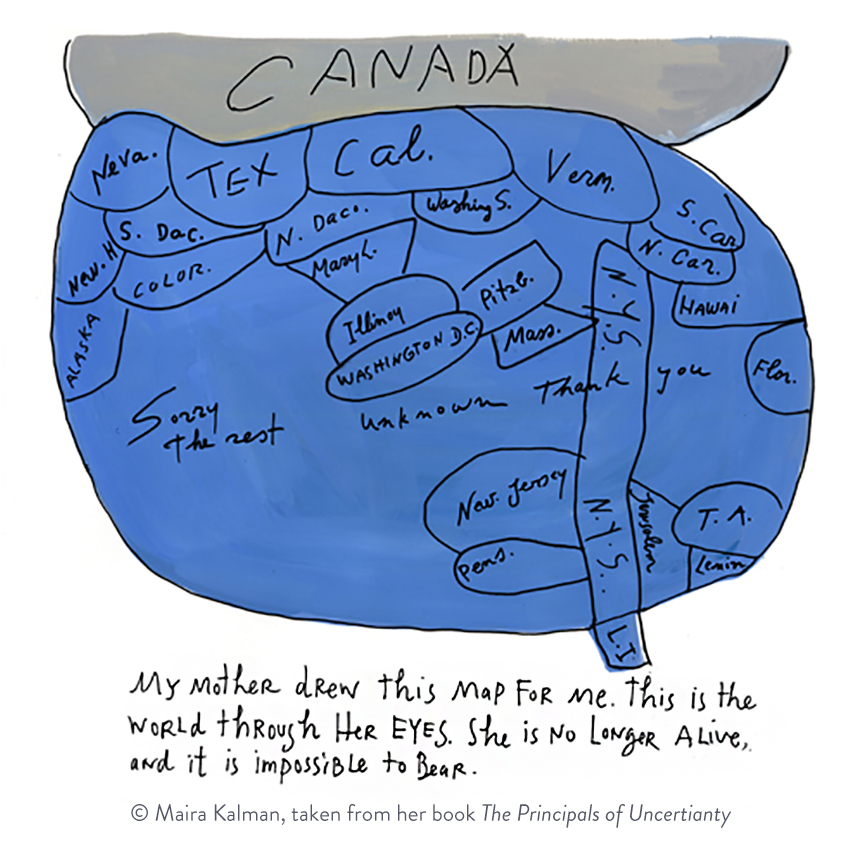 CANADA
Neva.
TEX
Cal.
Verm.
S. Dac.
N. Daco.
Washing S.
S. Car.
N. Car.
New. H
COLOR.
Maryl.
Pitzb.
N.Y.S.
HAWAI
ALASKA
Illinoy
WASHINGTON D.C.
Mass.
Flor.
Sorry
the rest
unknown Thank you
New Jersey
N.Y.S.
Jerusalem
T. A.
Pens.
Lenin
L.I.
My Mother drew this map for me. This is the
world through Her EYES. She is No Longer Alive,
and it is impossible to Bear.
© Maira Kalman, taken from her book The Principals of Uncertianty